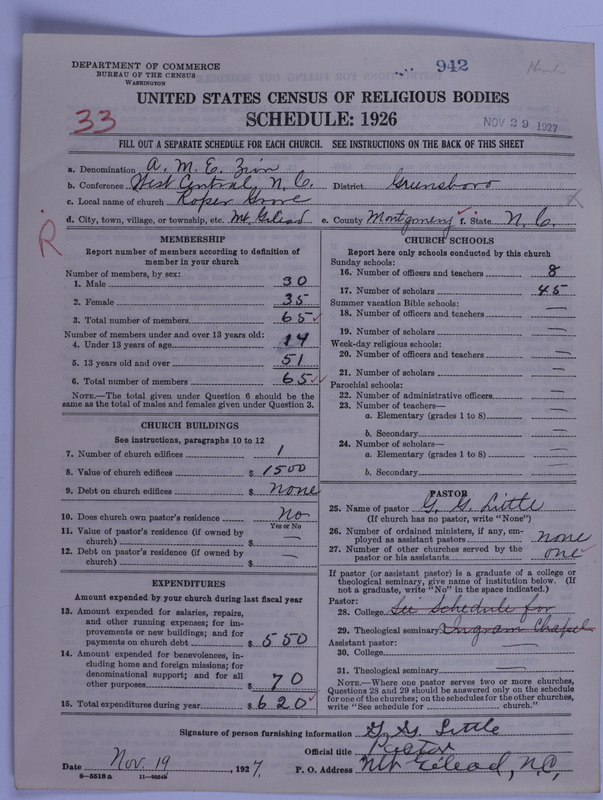 DEPARTMENT OF COMMERCE
BUREAU OF THE CENSUS
WASHINGTON
942
UNITED STATES CENSUS OF RELIGIOUS BODIES
33
SCHEDULE: 1926
NOV 29 1927
FILL OUT A SEPARATE SCHEDULE FOR EACH CHURCH. SEE INSTRUCTIONS ON THE BACK OF THIS SHEET
a. Denomination A. M. E. Zion
b. Conference West Central, N. C. District Greensboro
c. Local name of church Roper Grove
d. City, town, village, or township, etc. Mt. Gilead e. County Montgomery f. State N. C.
R
MEMBERSHIP
Report number of members according to definition of
member in your church
Number of members, by sex:
1. Male 30
2. Female 35
3. Total number of members 65
Number of members under and over 13 years old:
4. Under 13 years of age 14
5. 13 years old and over 51
6. Total number of members 65
NOTE.—The total given under Question 6 should be
same as the total of males and females given under Question 3.
CHURCH BUILDINGS
See instructions, paragraphs 10 to 12
7. Number of church edifices 1
8. Value of church edifices $ 1500
9. Debt on church edifices $ None
10. Does church own pastor's residence No
Yes or No
11. Value of pastor's residence (if owned by
church) $ —
12. Debt on pastor's residence (if owned by
church) $ —
EXPENDITURES
Amount expended by your church during last fiscal year
13. Amount expended for salaries, repairs,
and other running expenses; for im-
provements or new buildings; and for
payments on church debt $ 550
14. Amount expended for benevolences, in-
cluding home and foreign missions; for
denominational support; and for all
other purposes $ 70
15. Total expenditures during year $ 620
CHURCH SCHOOLS
Report here only schools conducted by this church
Sunday schools:
16. Number of officers and teachers 8
17. Number of scholars 45
Summer vacation Bible schools:
18. Number of officers and teachers —
19. Number of scholars —
Week-day religious schools:
20. Number of officers and teachers —
21. Number of scholars —
Parochial schools:
22. Number of administrative officers —
23. Number of teachers—
a. Elementary (grades 1 to 8) —
b. Secondary —
24. Number of scholars—
a. Elementary (grades 1 to 8) —
b. Secondary —
PASTOR
25. Name of pastor G. G. Little
(If church has no pastor, write "None")
26. Number of ordained ministers, if any, em-
ployed as assistant pastors none
27. Number of other churches served by the
pastor or his assistants one
If pastor (or assistant pastor) is a graduate of a college or
theological seminary, give name of institution below. (If
not a graduate, write "No" in the space indicated.)
Pastor:
28. College See Schedule for
29. Theological seminary Ingram Chapel
Assistant pastor:
30. College —
31. Theological seminary —
NOTE.—Where one pastor serves two or more churches,
Questions 28 and 29 should be answered only on the schedule
for one of the churches; on the schedules for the other churches,
write "See schedule for church."
Signature of person furnishing information G. G. Little
Official title Pastor
Date Nov. 19, 1927. P. O. Address Mt. Gilead, N.C.
8—5518a 11—9054b